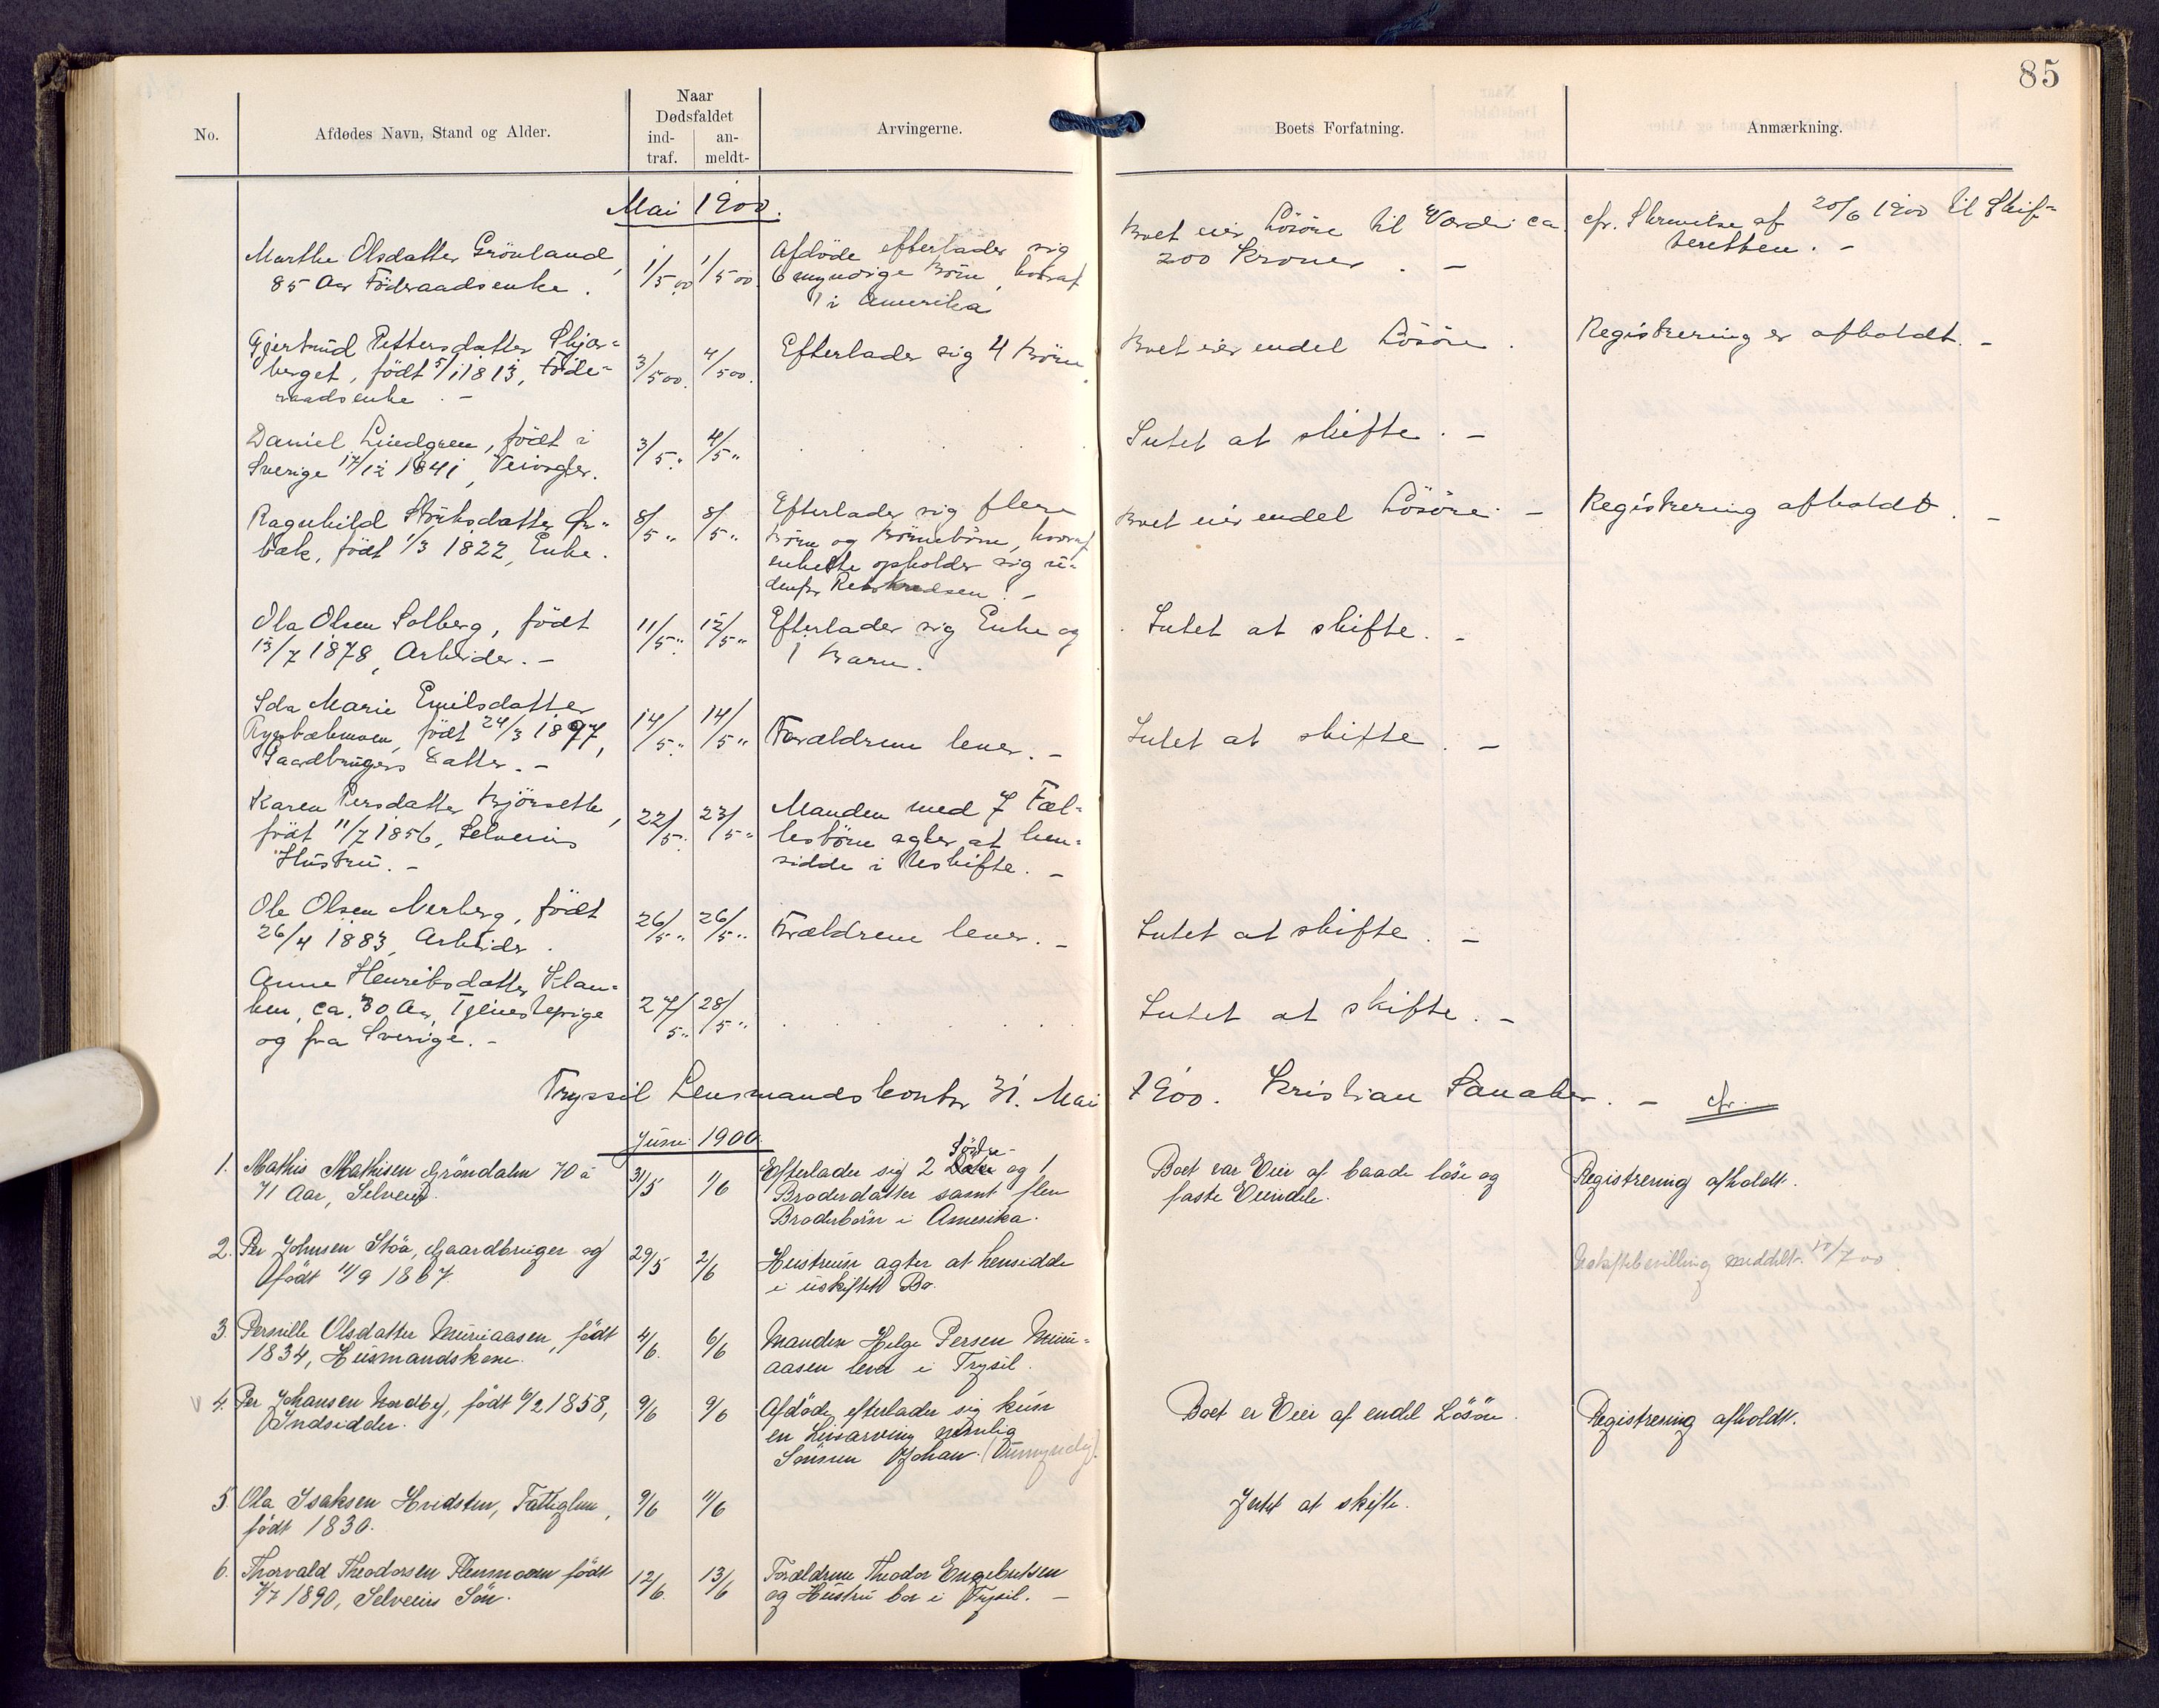 85
No.
Afdødes Navn, Stand og Alder.
Naar
Dødsfaldet
ind-
traf.
an-
meldt-
Arvingerne.
Boets Forfatning.
Anmærkning.
Mai 1900.
Marthe Olsdatter Grönland,
85 Aar Föderaadsenke.
1/5 00
1/5 00
Afdöde efterlader sig
6 myndige Börn, hvoraf
1 i Amerika
Boet eier Lösöre til Værdi ca
200 Kroner. -
cfr. Skrivelse af 20/6 1900 til Skif-
teretten. -
Gjertrud Pettersdatter Skjær-
berget, födt 5/1 1813, Föde-
raadsenke. -
3/5 00.
4/5 00.
Efterlader sig 4 Börn
Boet eier endel Lösöre.
Registrering er afholdt. -
Daniel Lindgren, födt i
Sverige 17/12 1841,
3/5 "
4/5 "
Intet at skifte. -
Ragnhild
bæk, födt 1/3 1822, Enke.
8/5 "
8/5 "
Efterlader sig flere
Börn og Börnebörn, hvoraf
enkelte opholder sig u-
denfor Retskredsen. -
Boet eier endel Lösöre. -
Registrering afholdt. -
Ola Olsen Solberg, födt
13/7 1878, Arbeider. -
11/5 "
12/5 "
Efterlader sig Enke og
1 Barn.
Intet at skifte. -
Ida Marie Emilsdatter
födt 24/3 1897,
Gaardbrugers Datter. -
14/5 "
14/5 "
Forældrene lever. -
Intet at skifte. -
Karen Persdatter Björseth,
födt 11/7 1856, Selveiers
Hustru. -
22/5 "
23/5 "
Manden med 7 Fæl-
lesbörn agter at hen-
sidde i Uskifte. -
Ole Olsen Nerberg, födt
26/4 1883, Arbeider.
26/5 "
26/5 "
Forældrene lever. -
Intet at skifte. -
Anne Henriksdatter
ca. 30 Aar, Tjenestepige
og fra Sverige. -
27/5 "
28/5 "
Intet at skifte. -
Tryssil Lensmandskontor 31. Mai 1900. Kristian Sanaker. - cfr.
Juni 1900.
1. Mathis Mathisen Gröndalen 70 à
71 Aar, Selveier.
31/5
1/6
Efterlader sig 2 Södre og 1
Broderdatter samt flere
Broderbörn i Amerika.
Boet var Eier af baade löse og
faste Eiendele.
Registrering afholdt.
2. Per Johnsen Stöa, Gaardbruger og
födt 11/9 1867.
29/5
2/6
Hustruen agter at hensidde
i uskiftet Bo.
Uskiftebevilling meddelt 17/7 00.
3. Pernille Olsdatter Muruaasen, födt
1834, Husmandskone.
4/6.
6/6
Manden Helge Persen Muru-
aasen lever i Trysil.
4. Per Johansen Nordby, födt 6/2 1858,
Indsidder.
9/6
9/6
Afdöde efterlader sig kun
en Livsarving nemlig
Sönnen Johan. (Umyndig).
Boet er Eier af endel Lösöre.
Registrering afholdt.
5. Ola Isaksen Hvidsten, Fattiglem,
födt 1830.
9/6
11/6
Intet at skifte.
6. Thorvald Theodorsen Flenmoen födt
7/7 1890, Selveiers Sön.
12/6.
13/6
Forældrene Theodor Engebretsen
og Hustru bor i Trysil. -